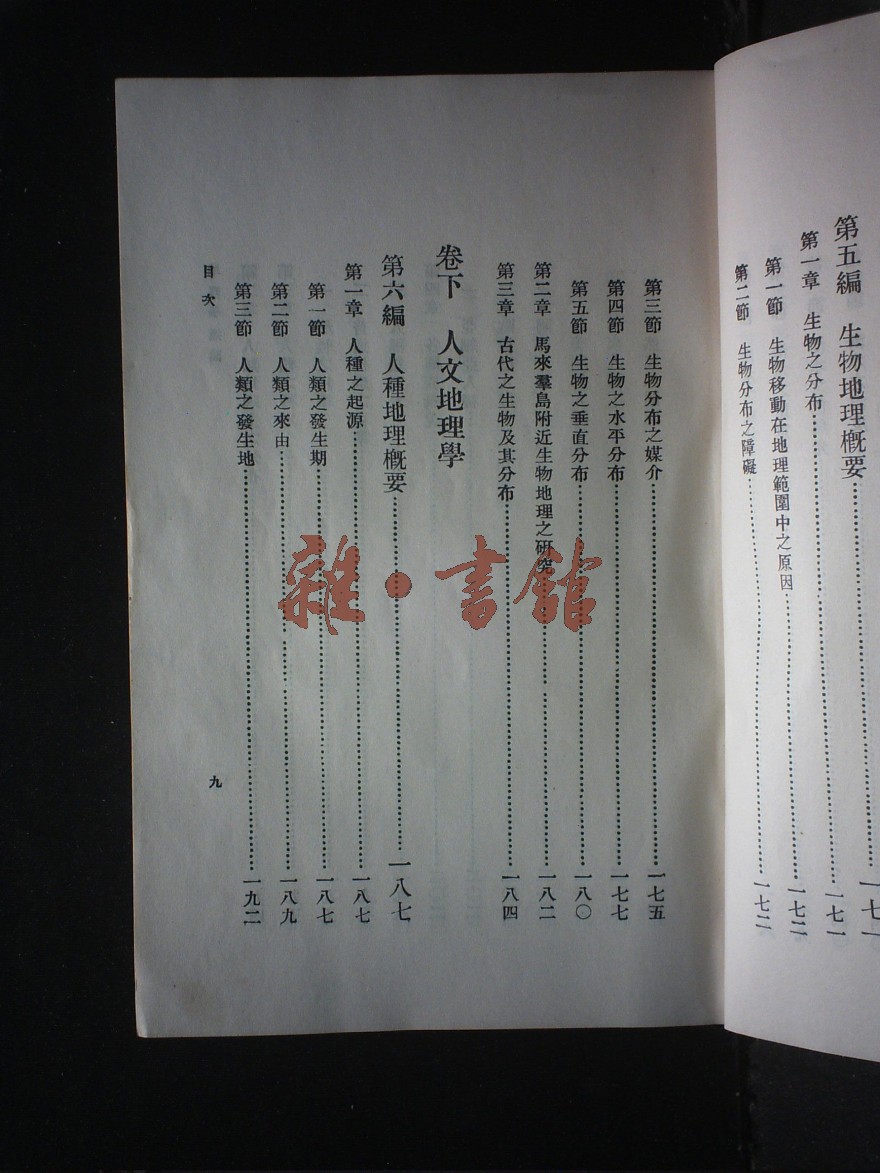 第五編 生物地理概要……一七一
第一章 生物之分布……一七一
第一節 生物移動在地理範圍中之原因……一七二
第二節 生物分布之障礙……一七二
第三節 生物分布之媒介……一七五
第四節 生物之水平分布……一七七
第五節 生物之垂直分布……一八〇
第二章 馬來羣島附近生物地理之研究……一八二
第三章 古代之生物及其分布……一八四
卷下 人文地理學
第六編 人種地理概要……一八七
第一章 人種之起源……一八七
第一節 人類之發生期……一八七
第二節 人類之來由……一八九
第三節 人類之發生地……一九二
目次
九
雜·書館